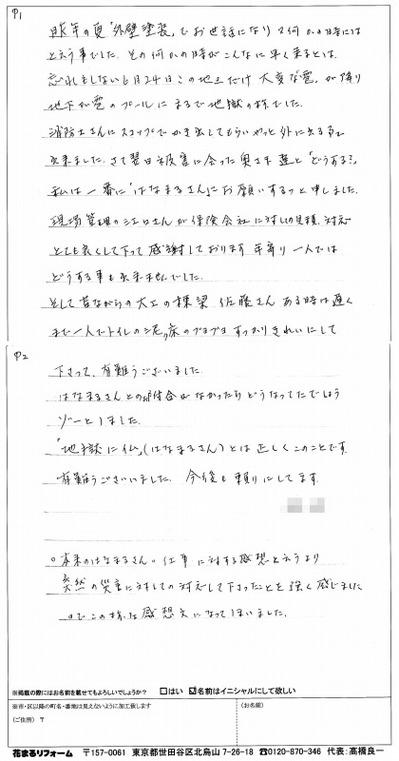 P1
昨年の夏「外壁塗装」でお世話になり又何かの時には
と云う事でした。その何かの時がこんなに早く来るとは。
忘れもしない6月24日この地区だけ大変な雹が降り
地下が雹のプールにまるで地獄の様でした。
消防士さんにスコップでかき出してもらいやっと外に出る事
出来ました。さて翌日被害に会った奥さま達と「どうする?」
私は一番に「はなまるさん」にお願いするっと申しました。
現場管理の江口さんが保険会社に対しての見積、対応
とても良くして下って感謝しております 年寄り一人では
どうする事も出来ませんでした。
そして昔ながらの大工の棟梁 佐藤さん ある時は遅く
まで一人でトイレの泥、床のブヨブヨ すっかりきれいにして
P2
下さって、有難うございました。
はなまるさんとの出合がなかったらどうなってたでしょう
ゾーとしました。
「地獄に仏」(はなまるさん)とは正しくこのことです。
有難うございました。今後も頼りにしてます。
○本来のはなまるさん。仕事に対する感想と云うより
突然の災害に対しての対応して下さったことを強く感じました
のでこの様な感想文になってしまいました。
※掲載の際にはお名前を載せてもよろしいでしょうか? □はい ☑名前はイニシャルにして欲しい
※市・区以降の町名・番地は見えないように加工致します
(ご住所) 〒
(お名前)
花まるリフォーム 〒157-0061 東京都世田谷区北烏山7-26-18 ☎0120-870-346 代表:高橋良一